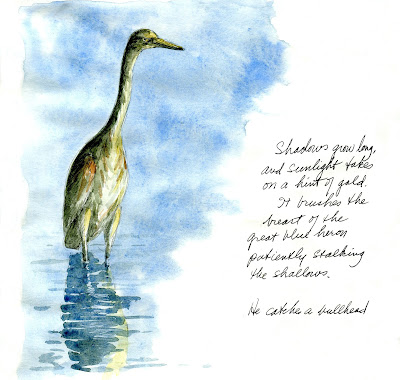 Shadows grow long,
and sunlight takes
on a hint of gold.
It brushes the
breast of the
great blue heron
patiently stalking
the shallows.
He catches a bullhead